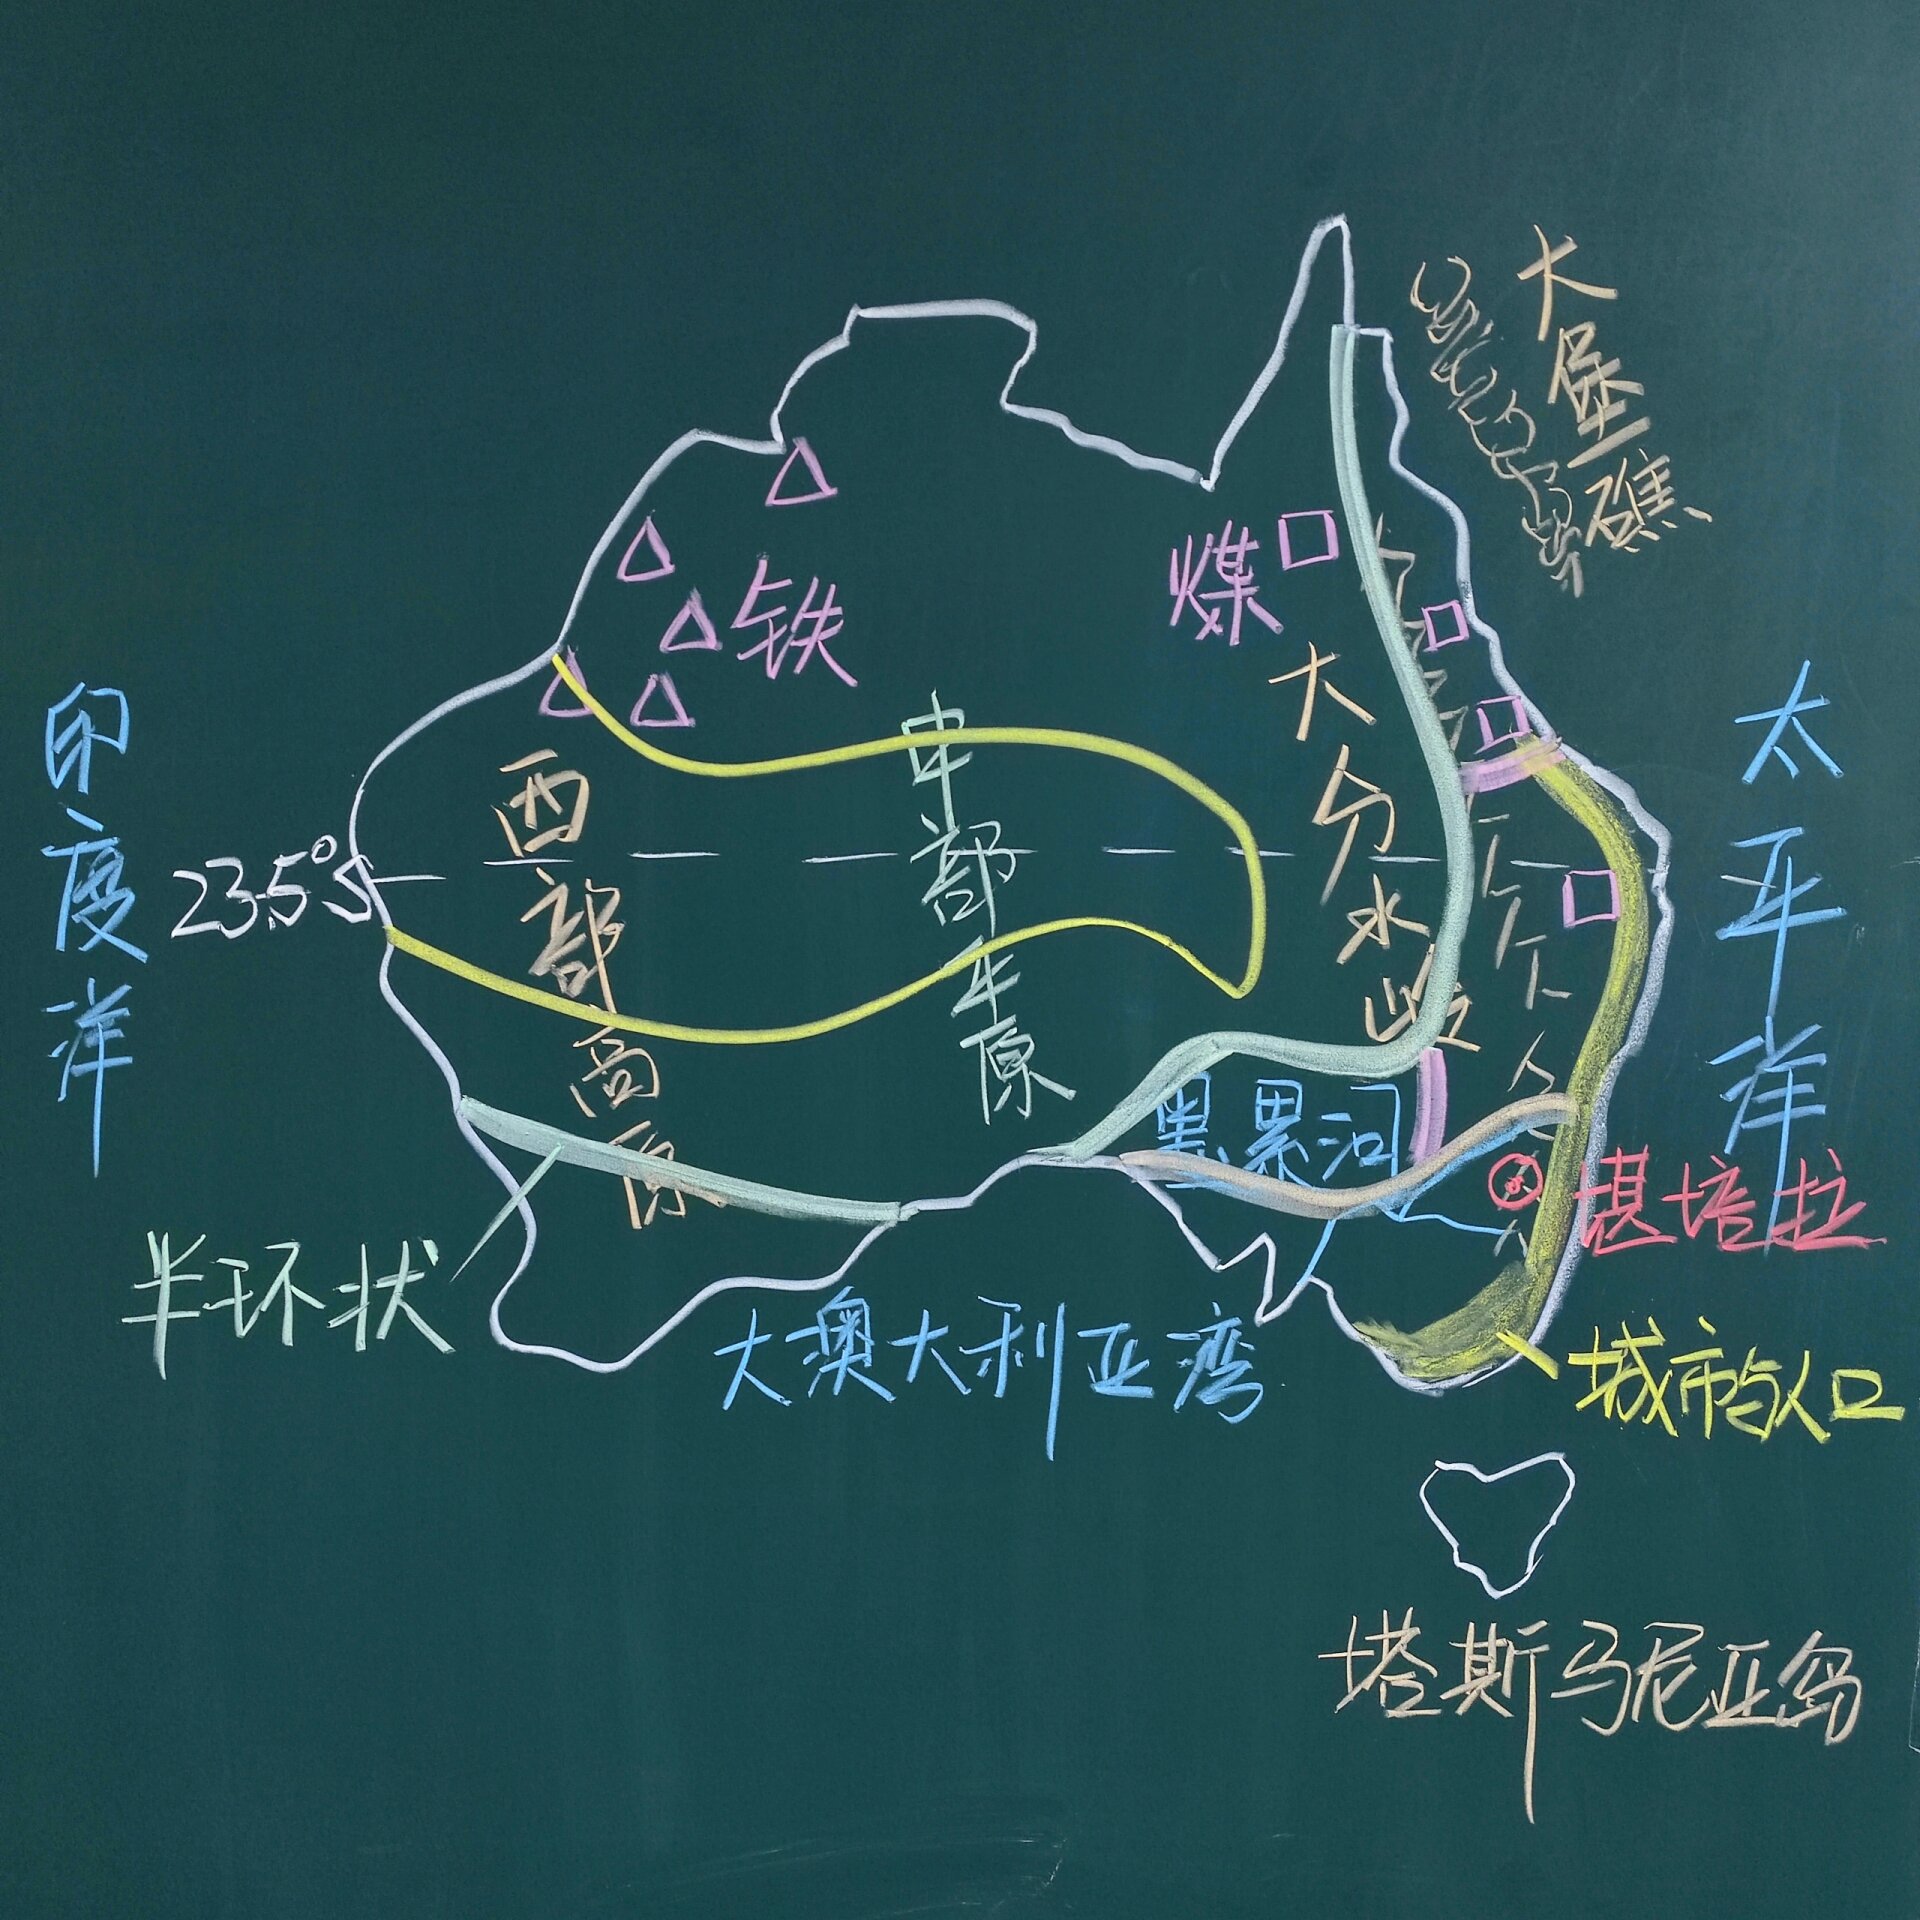 大堡礁
煤
铁
大分水岭
印度洋
太平洋
23.5°S
西部高原
中部平原
墨累河
堪培拉
半环状
大澳大利亚湾
城市与人口
塔斯马尼亚岛